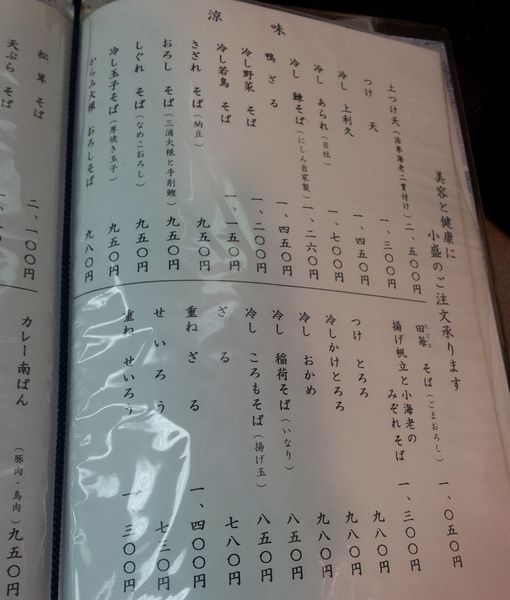 涼味
美容と健康に
小盛のご注文承ります
上つけ天(活車海老二貫付け) 二、五〇〇円
つけ 天 一、三〇〇円
冷し 上利久 一、四五〇円
冷し あられ(貝柱) 一、七〇〇円
冷し 鰊そば(にしん自家製) 一、二六〇円
鴨 ざる 一、四五〇円
冷し野菜 そば 一、二〇〇円
冷し若鳥 そば 一、一五〇円
さざれ そば(納豆) 九五〇円
おろし そば(三浦大根と手削鰹) 九五〇円
しぐれ そば(なめこおろし) 九五〇円
冷し玉子そば(厚焼き玉子) 九五〇円
からみ大根 おろしそば 九八〇円
田毎 そば(ごまおろし) 一、〇五〇円
揚げ帆立と小海老の
みぞれそば 一、三〇〇円
つけ とろろ 九八〇円
冷しかけとろろ 九八〇円
冷し おかめ 九八〇円
冷し 稲荷そば(いなり) 八五〇円
冷し ころもそば(揚げ玉) 八五〇円
ざ る 七八〇円
重ね ざ る 一、四〇〇円
せ い ろ う 七三〇円
重ね せいろう 一、三〇〇円
松 茸 そ ば 二、一〇〇円
天ぷら そば
カレー南ばん(豚肉・鳥肉) 九五〇円